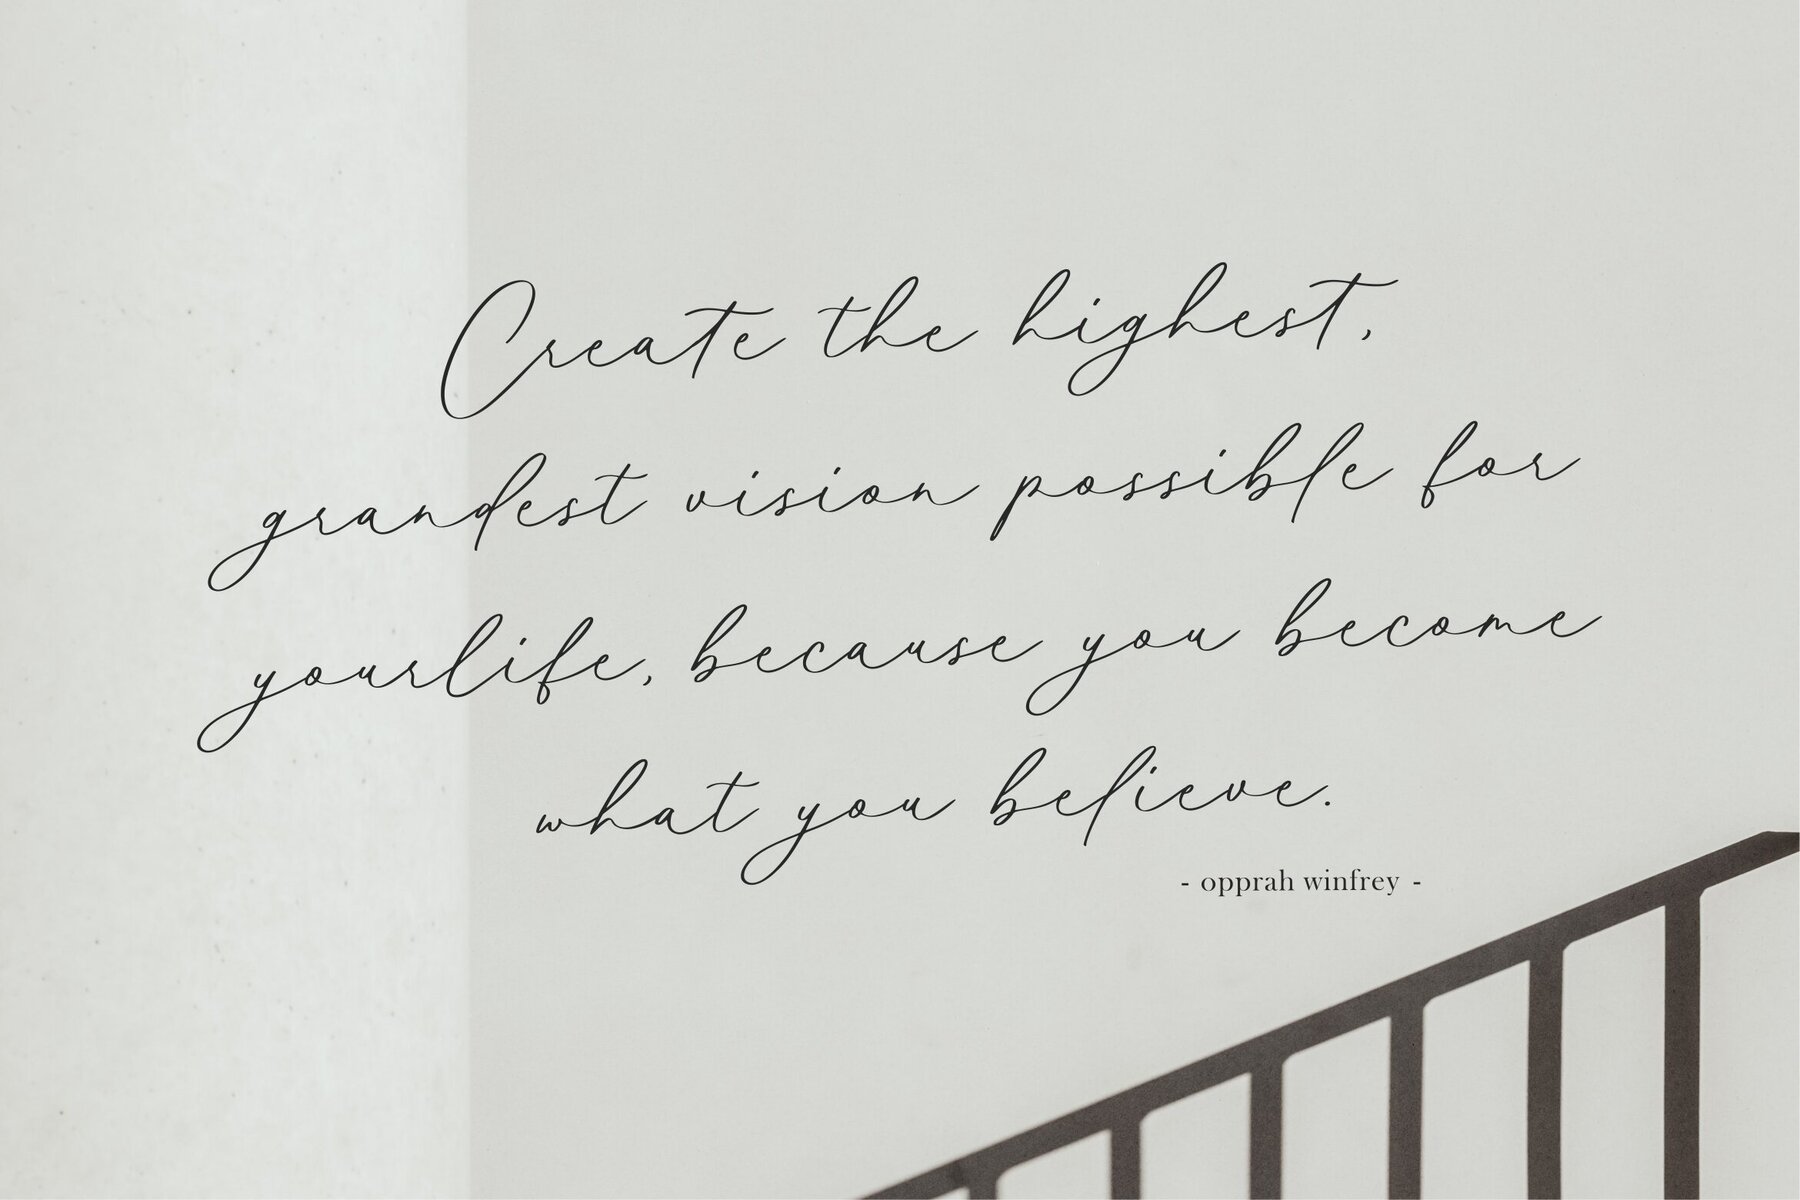 Create the highest,
grandest vision possible for
yourlife, because you become
what you believe.
- opprah winfrey -